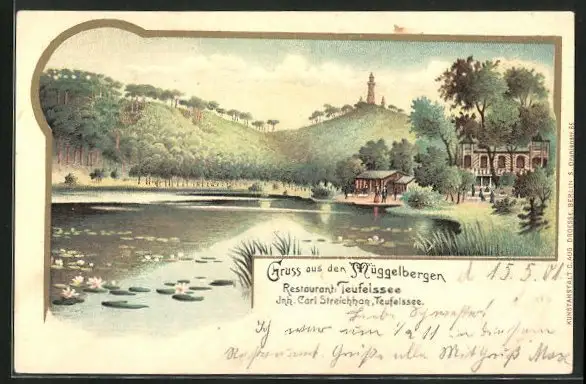 Gruss aus den Müggelbergen
Restaurant Teufelssee
Jnh. Carl Streichhan, Teufelssee.
d 15.5.01
Liebe Schwester!
Ich war um 1/2 11 in diesem
Restaurant. Grüße alle Mit Gruß Max
KUNSTANSTALT C. AUG. DROESSE, BERLIN S.